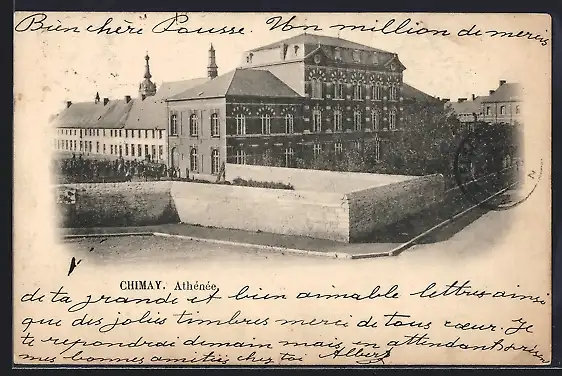 Bien chère Pousse Un million de mercis
CHIMAY. Athénée
de ta grande et bien aimable lettres ainsi
que des jolies timbres merci de tous cœur. Je
te repondrai demain mais en attendant
mes bonnes amitiés chez toi Albert